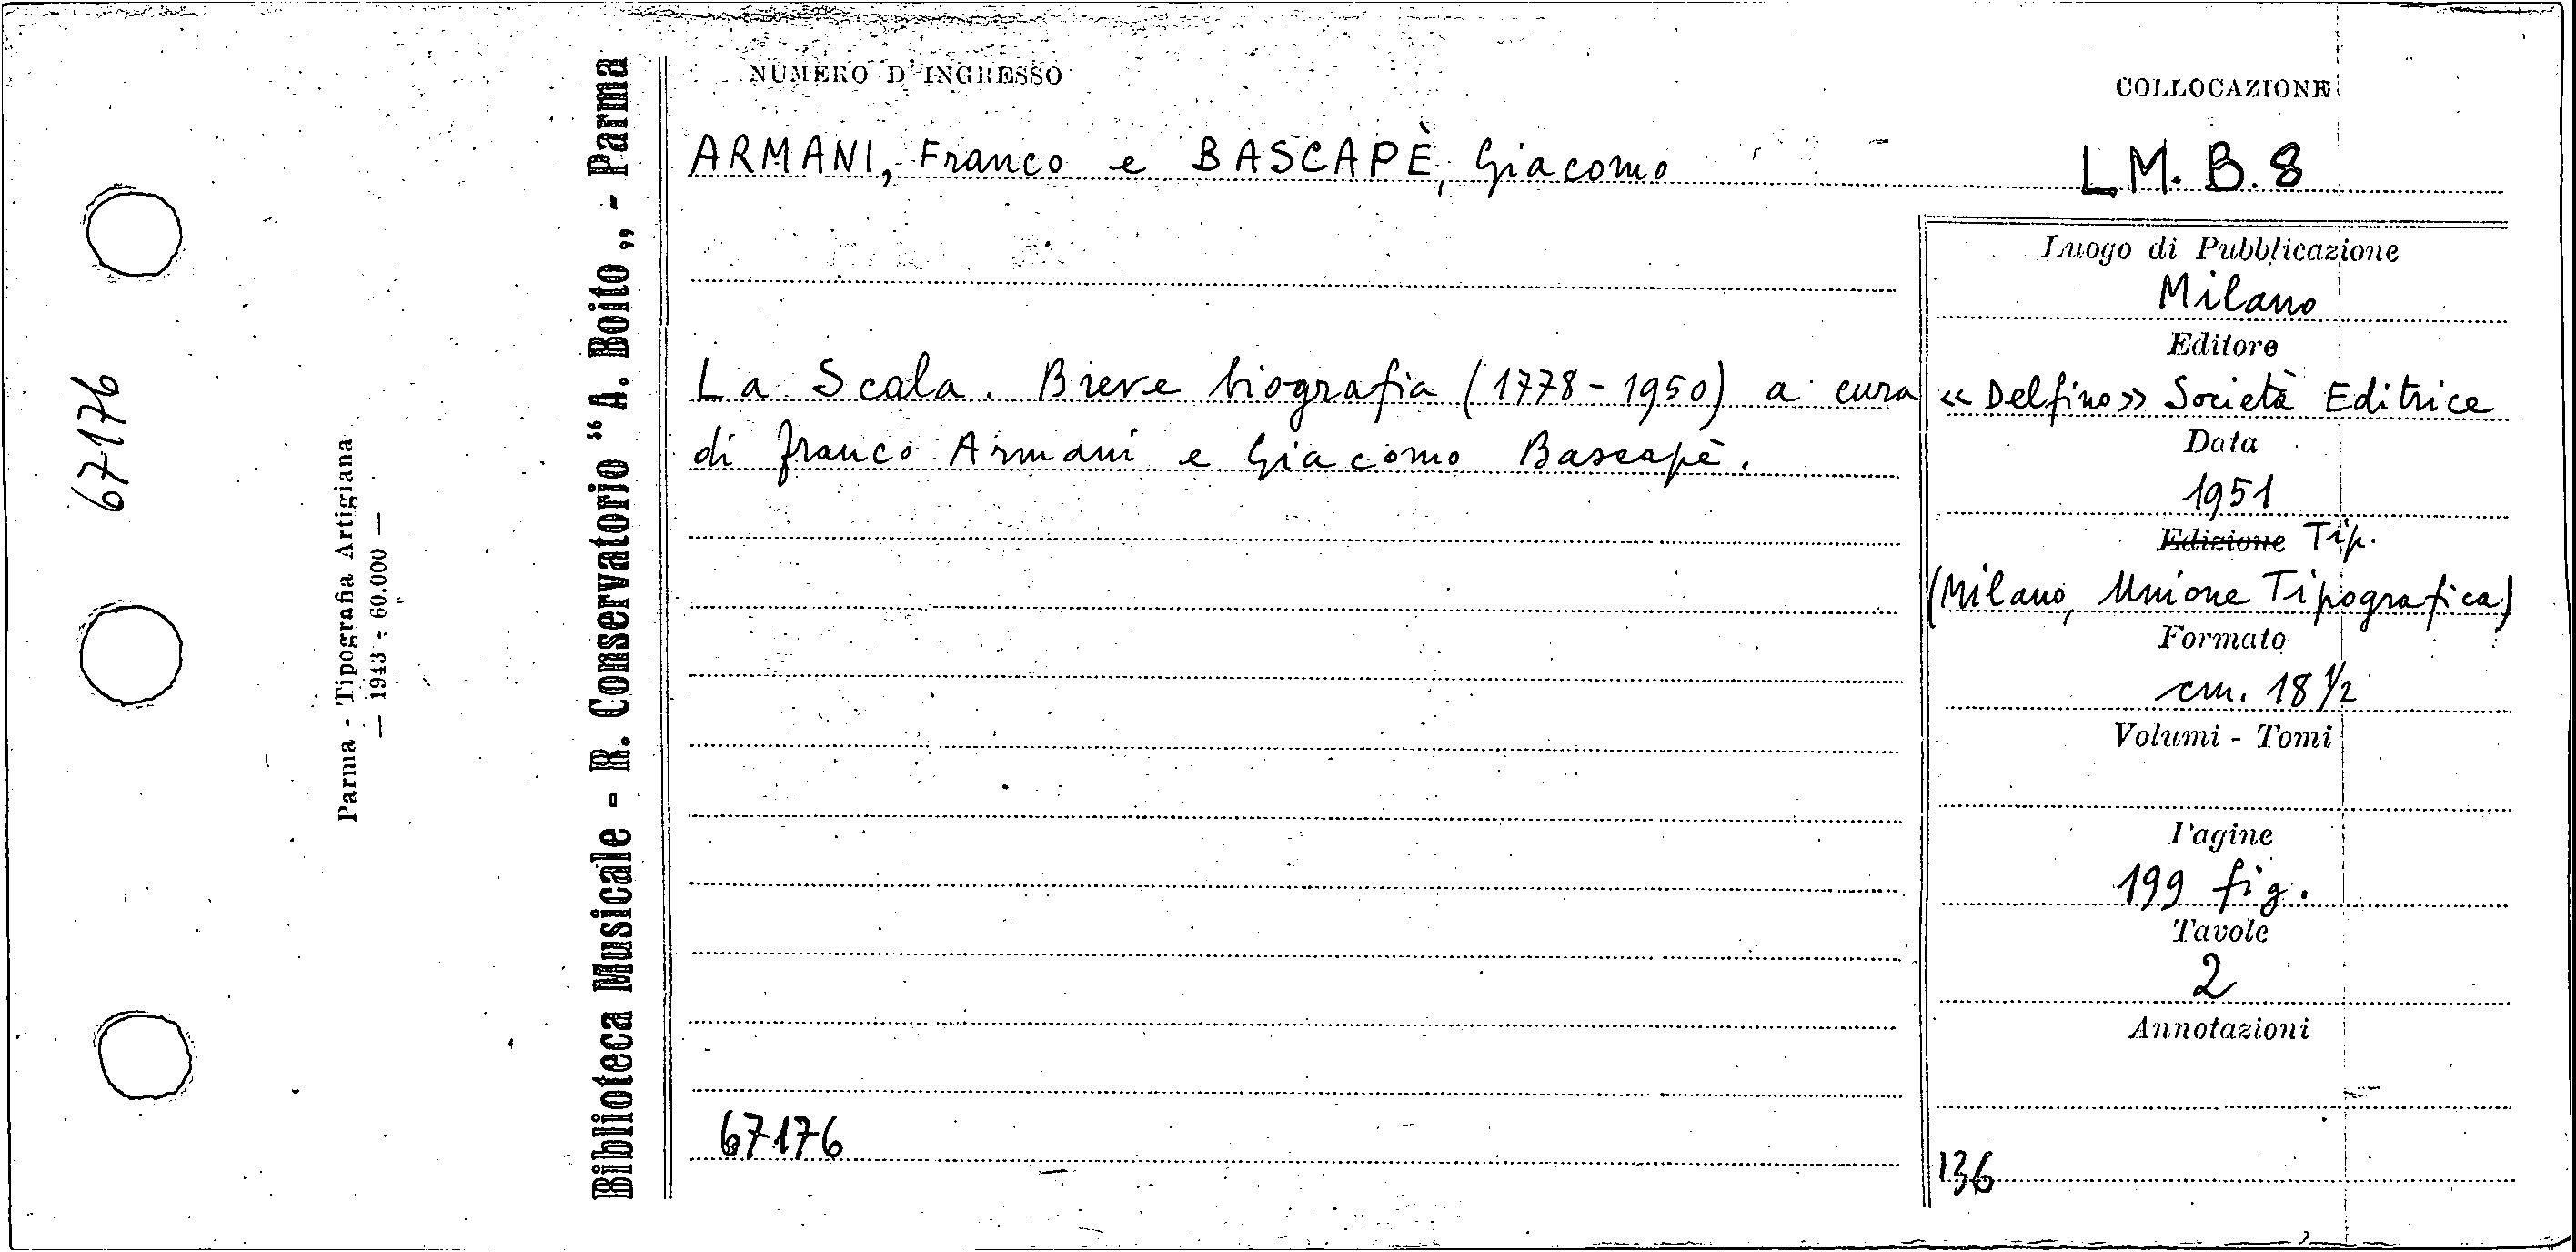 67176
Parma - Tipografia Artigiana
— 1943 - 60.000 —
Biblioteca Musicale - R. Conservatorio “A. Boito„ - Parma
NUMERO D'INGRESSO
COLLOCAZIONE
ARMANI, Franco e BASCAPÈ, Giacomo
LM. B. 8
La Scala. Breve biografia (1778-1950) a cura
di Franco Armani e Giacomo Bascapè.
67176
Luogo di Pubblicazione
Milano
Editore
«Delfino» Società Editrice
Data
1951
Edizione Tip.
(Milano, Unione Tipografica)
Formato
cm. 18 ½
Volumi - Tomi
Pagine
199 fig.
Tavole
2
Annotazioni
136